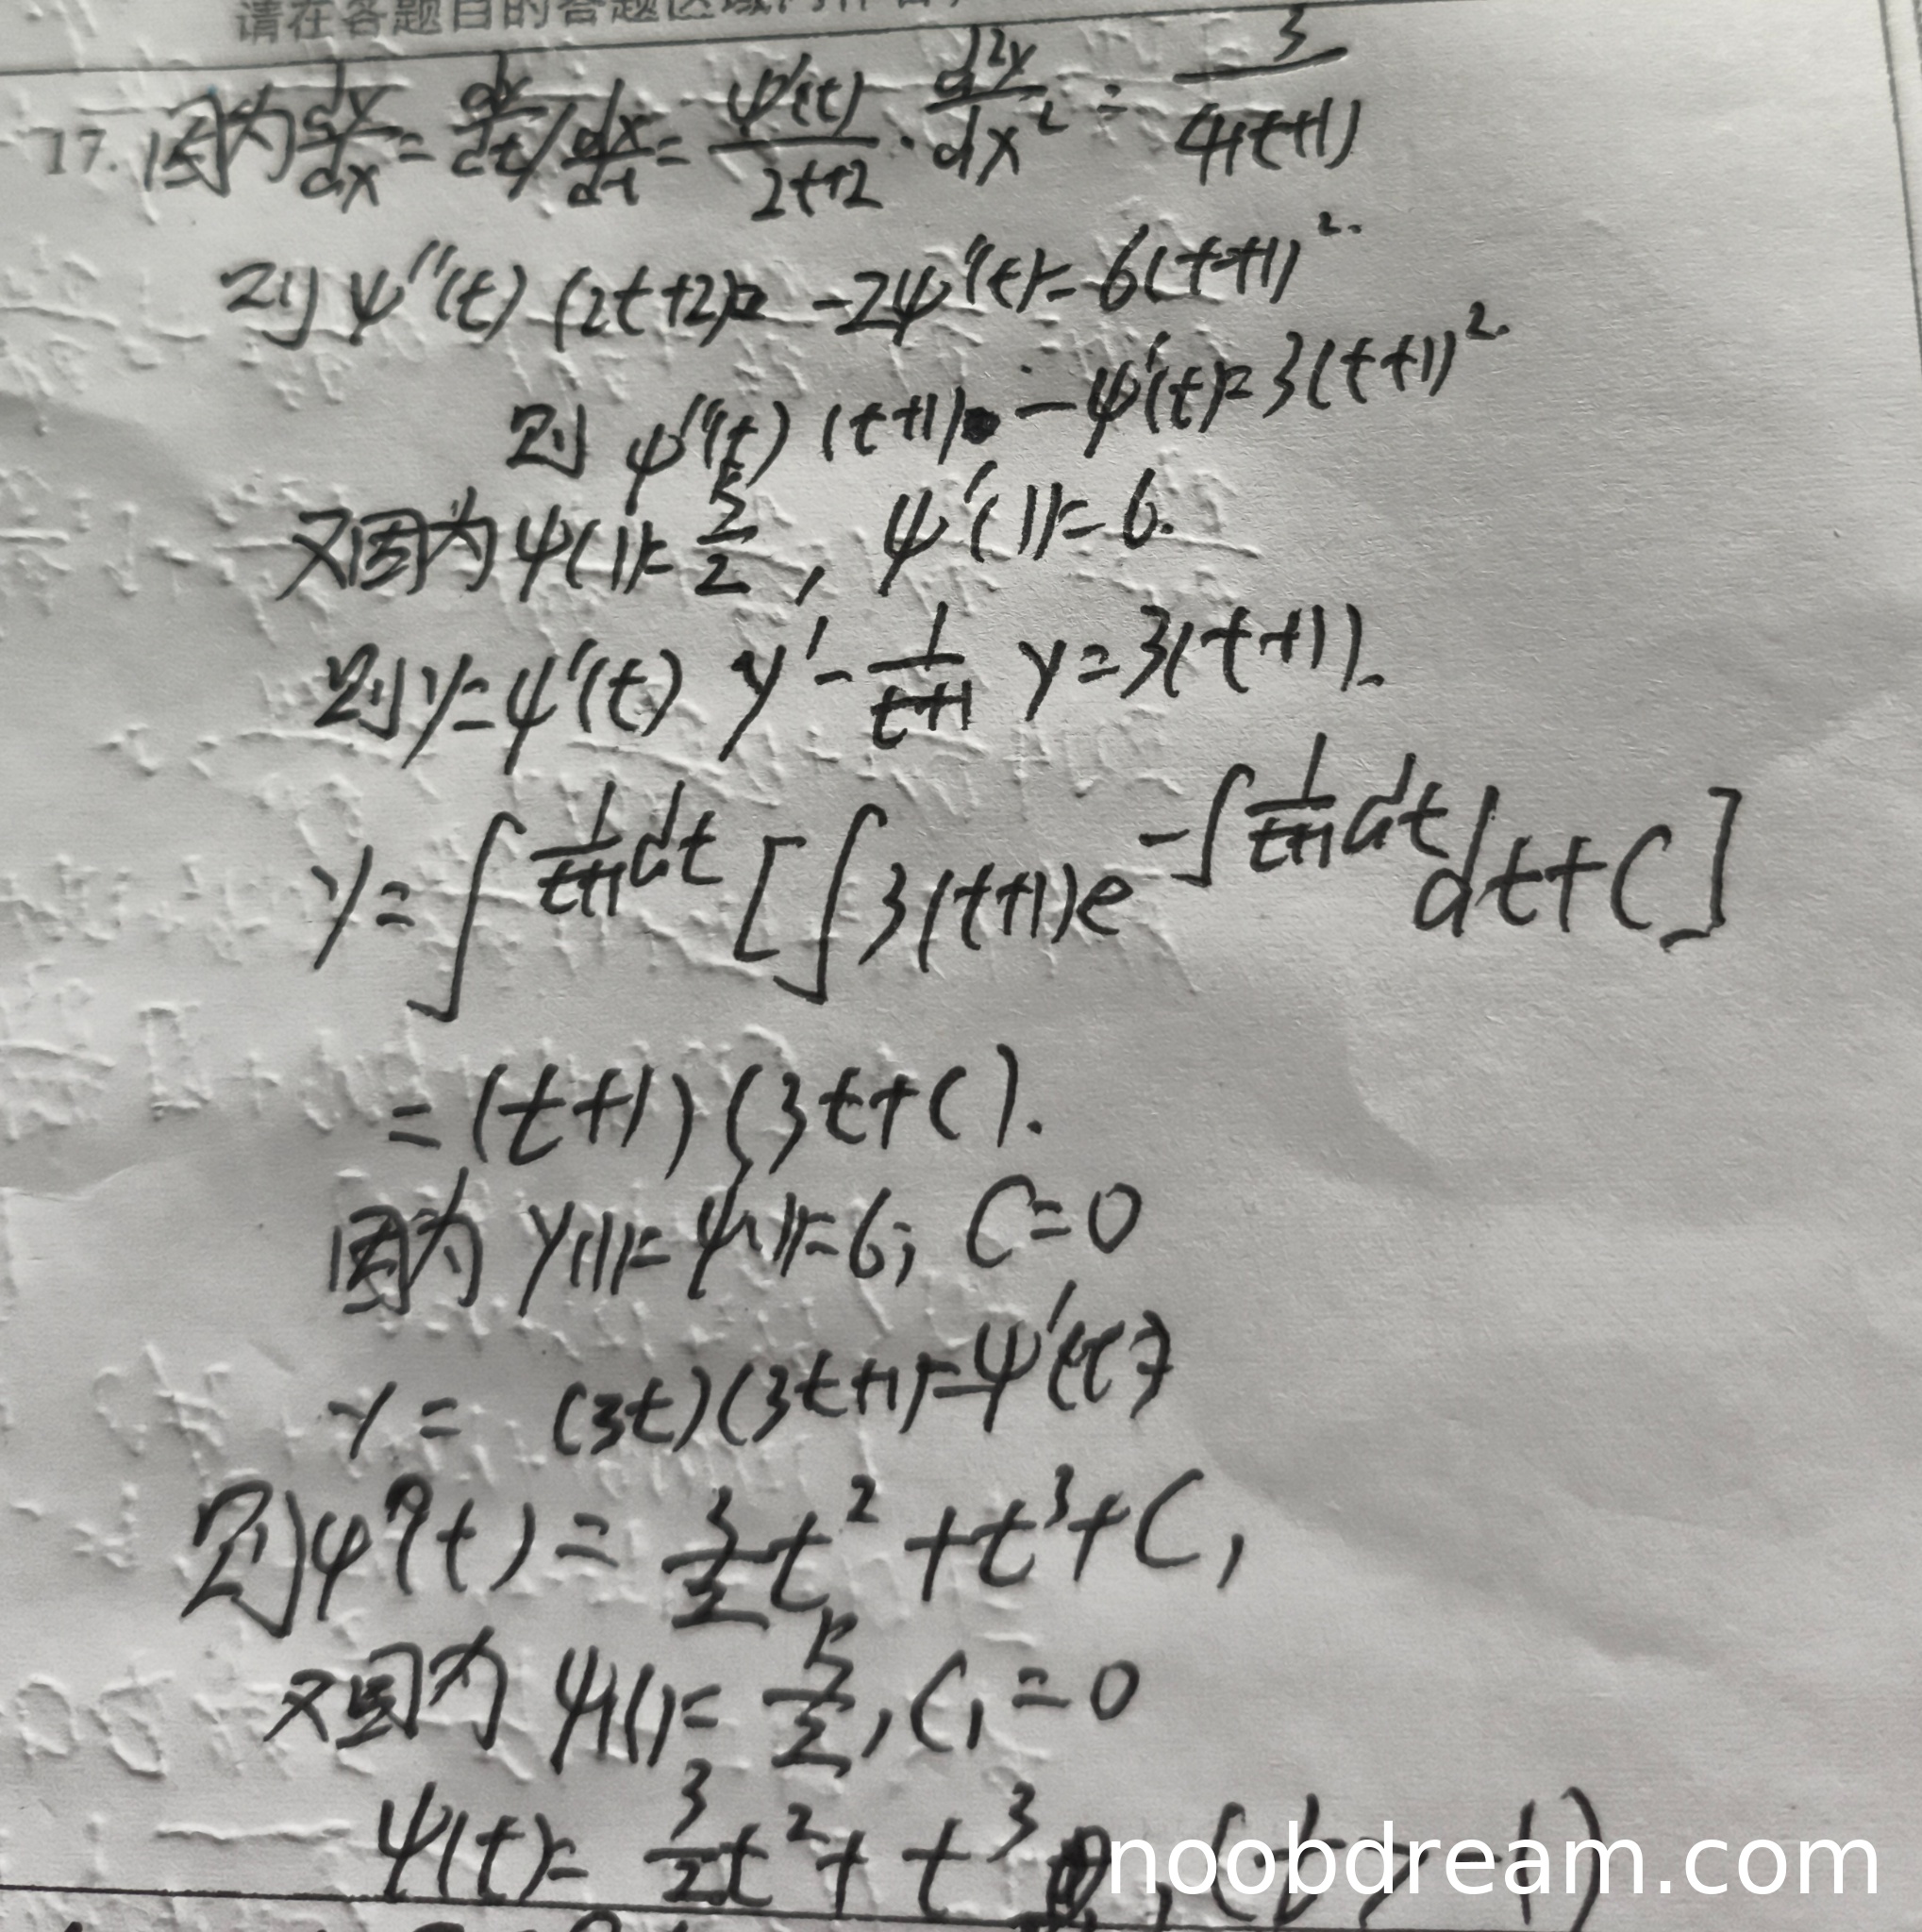 请在各题目的答题区域内作答,
17. 因为 dy/dx = dy/dt / dx/dt = ψ'(t)/(2t+2) · d²y/dx² = 3/(4(t+1))
则 ψ''(t) (2t+2) -2ψ'(t) = 6(t+1)².
则 ψ''(t) (t+1) - ψ'(t) = 3(t+1)².
又因为 ψ(1) = 5/2 , ψ'(1) = 6.
则 y = ψ'(t) y' - 1/(t+1) y = 3(t+1).
y = ∫ 1/(t+1) dt [∫ 3(t+1)e^(-∫ 1/(t+1) dt) dt + C]
= (t+1) (3t+C).
因为 y(1) = ψ'(1) = 6; C = 0
y = (3t)(3t+1) = ψ'(t)
则 ψ(t) = 3/2 t² + t³ + C₁
又因为 ψ(1) = 5/2 , C₁ = 0
ψ(t) = 3/2 t² + t³ , (t > -1)
noobdream.com